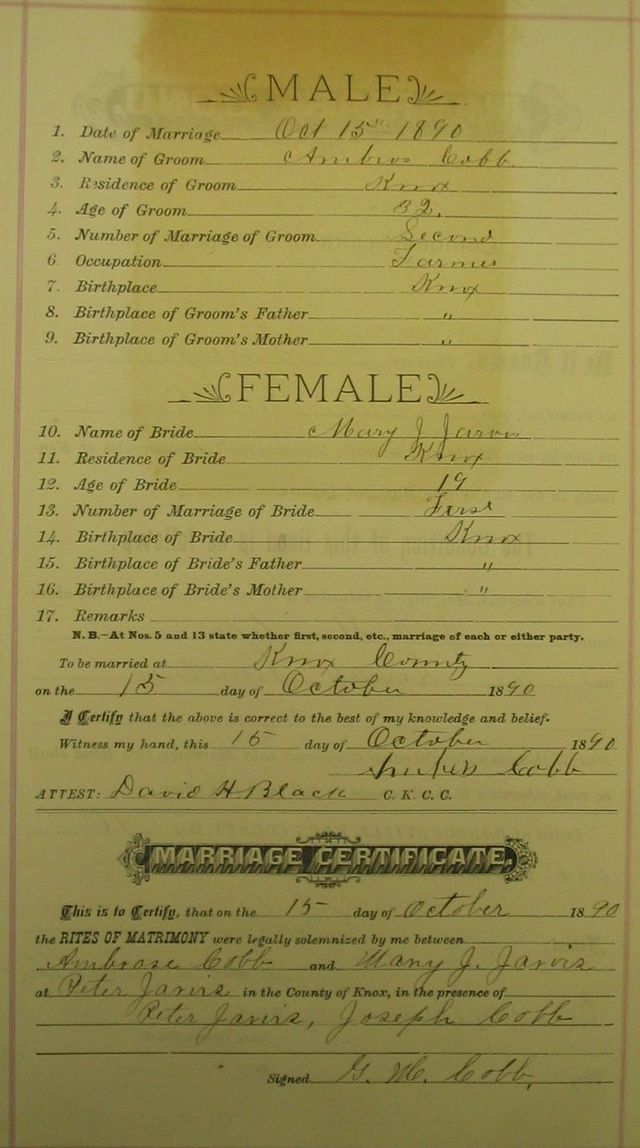 MALE
1. Date of Marriage Oct 15" 1890
2. Name of Groom Ambros Cobb
3. Residence of Groom Knox
4. Age of Groom 32.
5. Number of Marriage of Groom Second
6. Occupation Farmer
7. Birthplace Knox
8. Birthplace of Groom's Father "
9. Birthplace of Groom's Mother "
FEMALE
10. Name of Bride Mary J Jarvis
11. Residence of Bride Knox
12. Age of Bride 19
13. Number of Marriage of Bride First
14. Birthplace of Bride Knox
15. Birthplace of Bride's Father "
16. Birthplace of Bride's Mother "
17. Remarks
N. B.—At Nos. 5 and 13 state whether first, second, etc., marriage of each or either party.
To be married at Knox County
on the 15 day of October 1890
I Certify that the above is correct to the best of my knowledge and belief.
Witness my hand, this 15 day of October 1890
Cobb
ATTEST: David H Black C. K. C. C.
MARRIAGE CERTIFICATE.
This is to Certify, that on the 15 day of October 1890
the RITES OF MATRIMONY were legally solemnized by me between
Ambrose Cobb and Mary J. Jarvis
at Peter Jarvis in the County of Knox, in the presence of
Peter Jarvis, Joseph Cobb
Signed G. W. Cobb,